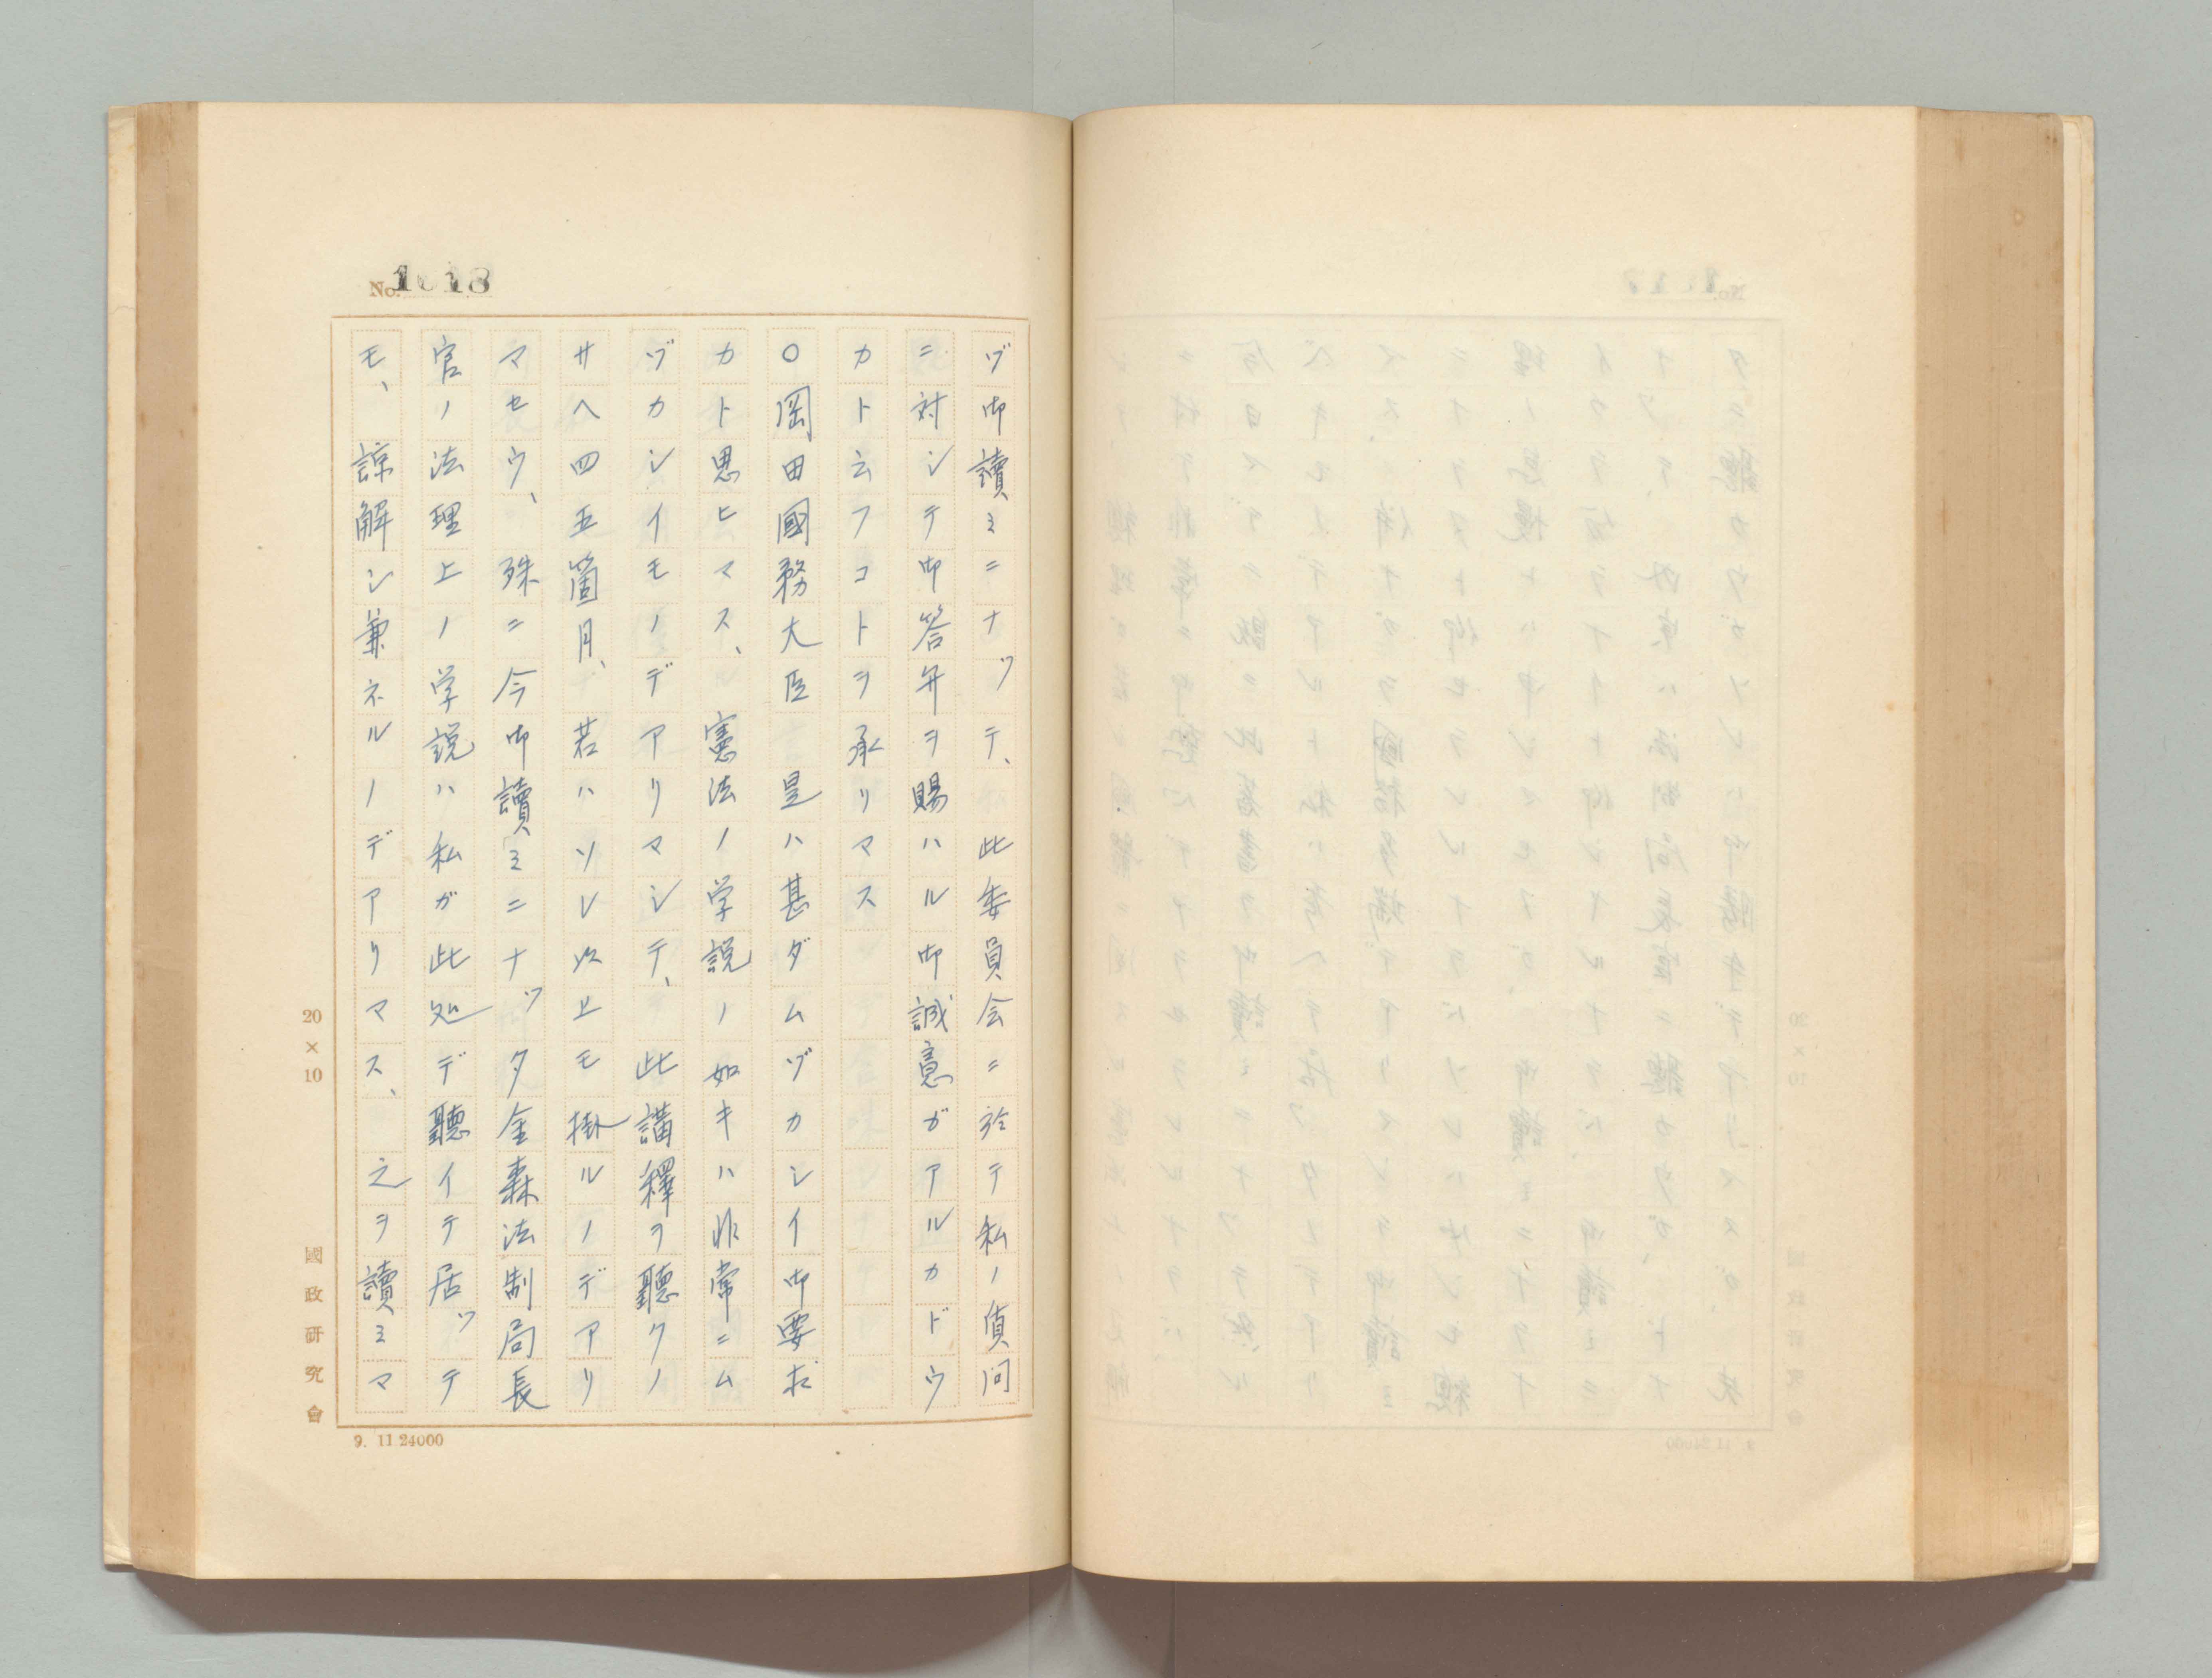 No. 1018
ヅ御讀ミニナツテ、此委員会ニ於テ私ノ質問
ニ対シテ御答弁ヲ賜ハル御誠意ガアルカドウ
カト云フコトヲ承リマス
〇岡田國務大臣 是ハ甚ダムヅカシイ御要求
カト思ヒマス、憲法ノ学説ノ如キハ非常ニム
ヅカシイモノデアリマシテ、此講釋ヲ聽クノ
サヘ四五箇月、若ハソレ以上モ掛ルノデアリ
マセウ、殊ニ今御讀ミニナツタ金森法制局長
官ノ法理上ノ学説ハ私ガ此処デ聽イテ居ツテ
モ、諒解シ兼ネルノデアリマス、之ヲ讀ミマ
20×10
國政研究會
9. 11 24000